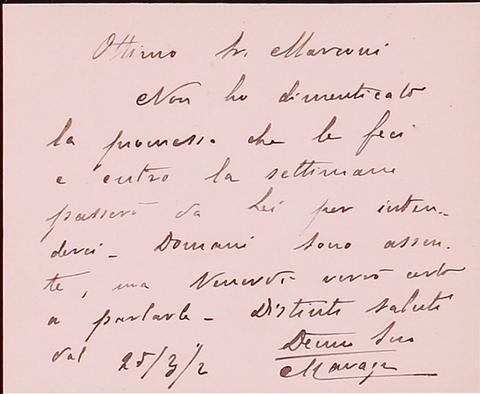 Ottimo Sr. Marconi
Non ho dimenticato
la promessa che le feci
e entro la settimana
passerò da Lei per inten-
derci - Domani sono assen-
te, ma Venerdì verrò certo
a parlarle - Distinti saluti
dal 25/3/2